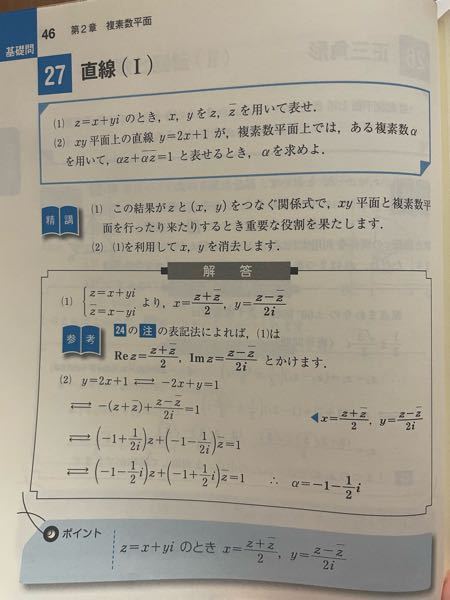 46 第2章 複素数平面
基礎問
27 直線(Ⅰ)
(1) z=x+yi のとき,x,y を z,z̄ を用いて表せ.
(2) xy平面上の直線 y=2x+1 が,複素数平面上では,ある複素数α
を用いて,αz+ᾱz̄=1 と表せるとき,α を求めよ.
精講
(1) この結果が z と (x, y) をつなぐ関係式で,xy平面と複素数平
面を行ったり来たりするとき重要な役割を果たします.
(2) (1)を利用して x,y を消去します.
解答
(1) {z=x+yi
z̄=x−yi より,x=(z+z̄)/2,y=(z−z̄)/2i
参考
24の注の表記法によれば,(1)は
Re z=(z+z̄)/2,Im z=(z−z̄)/2i とかけます.
(2) y=2x+1 ⟺ −2x+y=1
⟺ −(z+z̄)+(z−z̄)/2i=1
◀x=(z+z̄)/2,y=(z−z̄)/2i
⟺ (−1+1/2i)z+(−1−1/2i)z̄=1
⟺ (−1−1/2 i)z+(−1+1/2 i)z̄=1 ∴ α=−1−1/2 i
ポイント
z=x+yi のとき x=(z+z̄)/2,y=(z−z̄)/2i